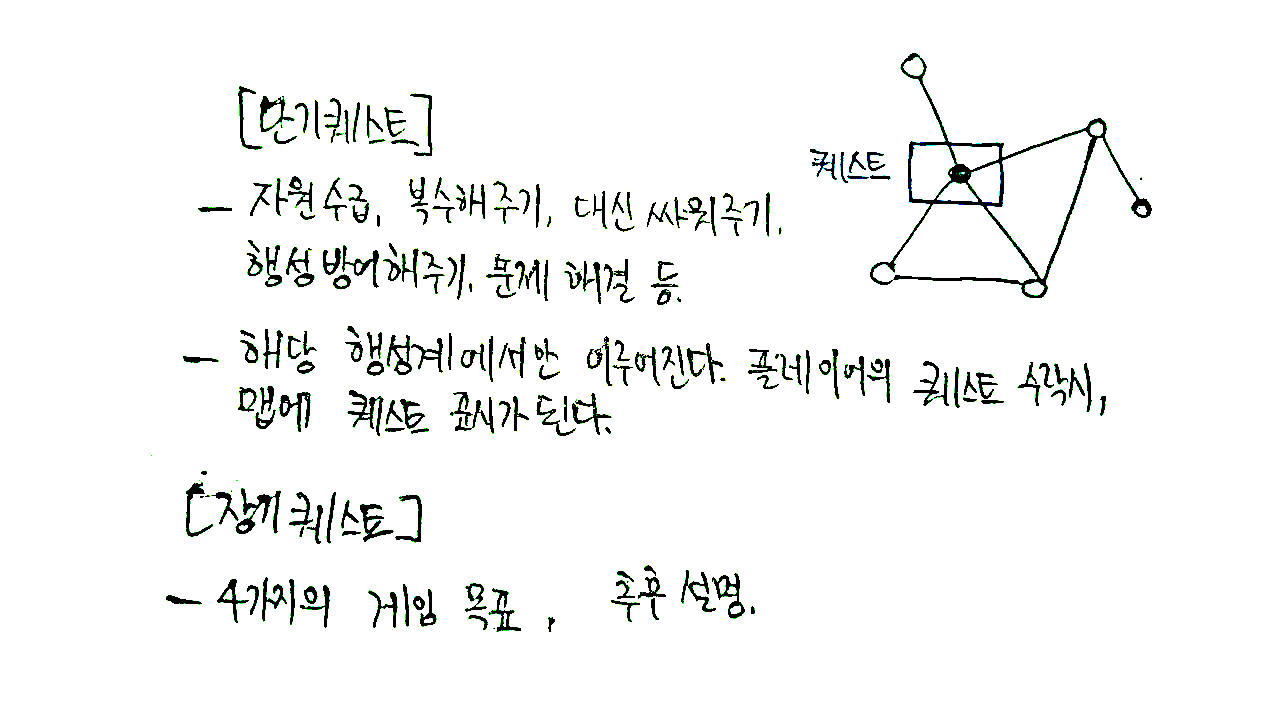 [단기퀘스트]
퀘스트
- 자원수급, 복수해주기, 대신 싸워주기,
행성방어해주기, 문제 해결 등.
- 해당 행성계에서만 이루어진다. 플레이어의 퀘스트 수락시,
맵에 퀘스트 표시가 된다.
[장기퀘스트]
- 4가지의 게임 목표, 추후 설명.